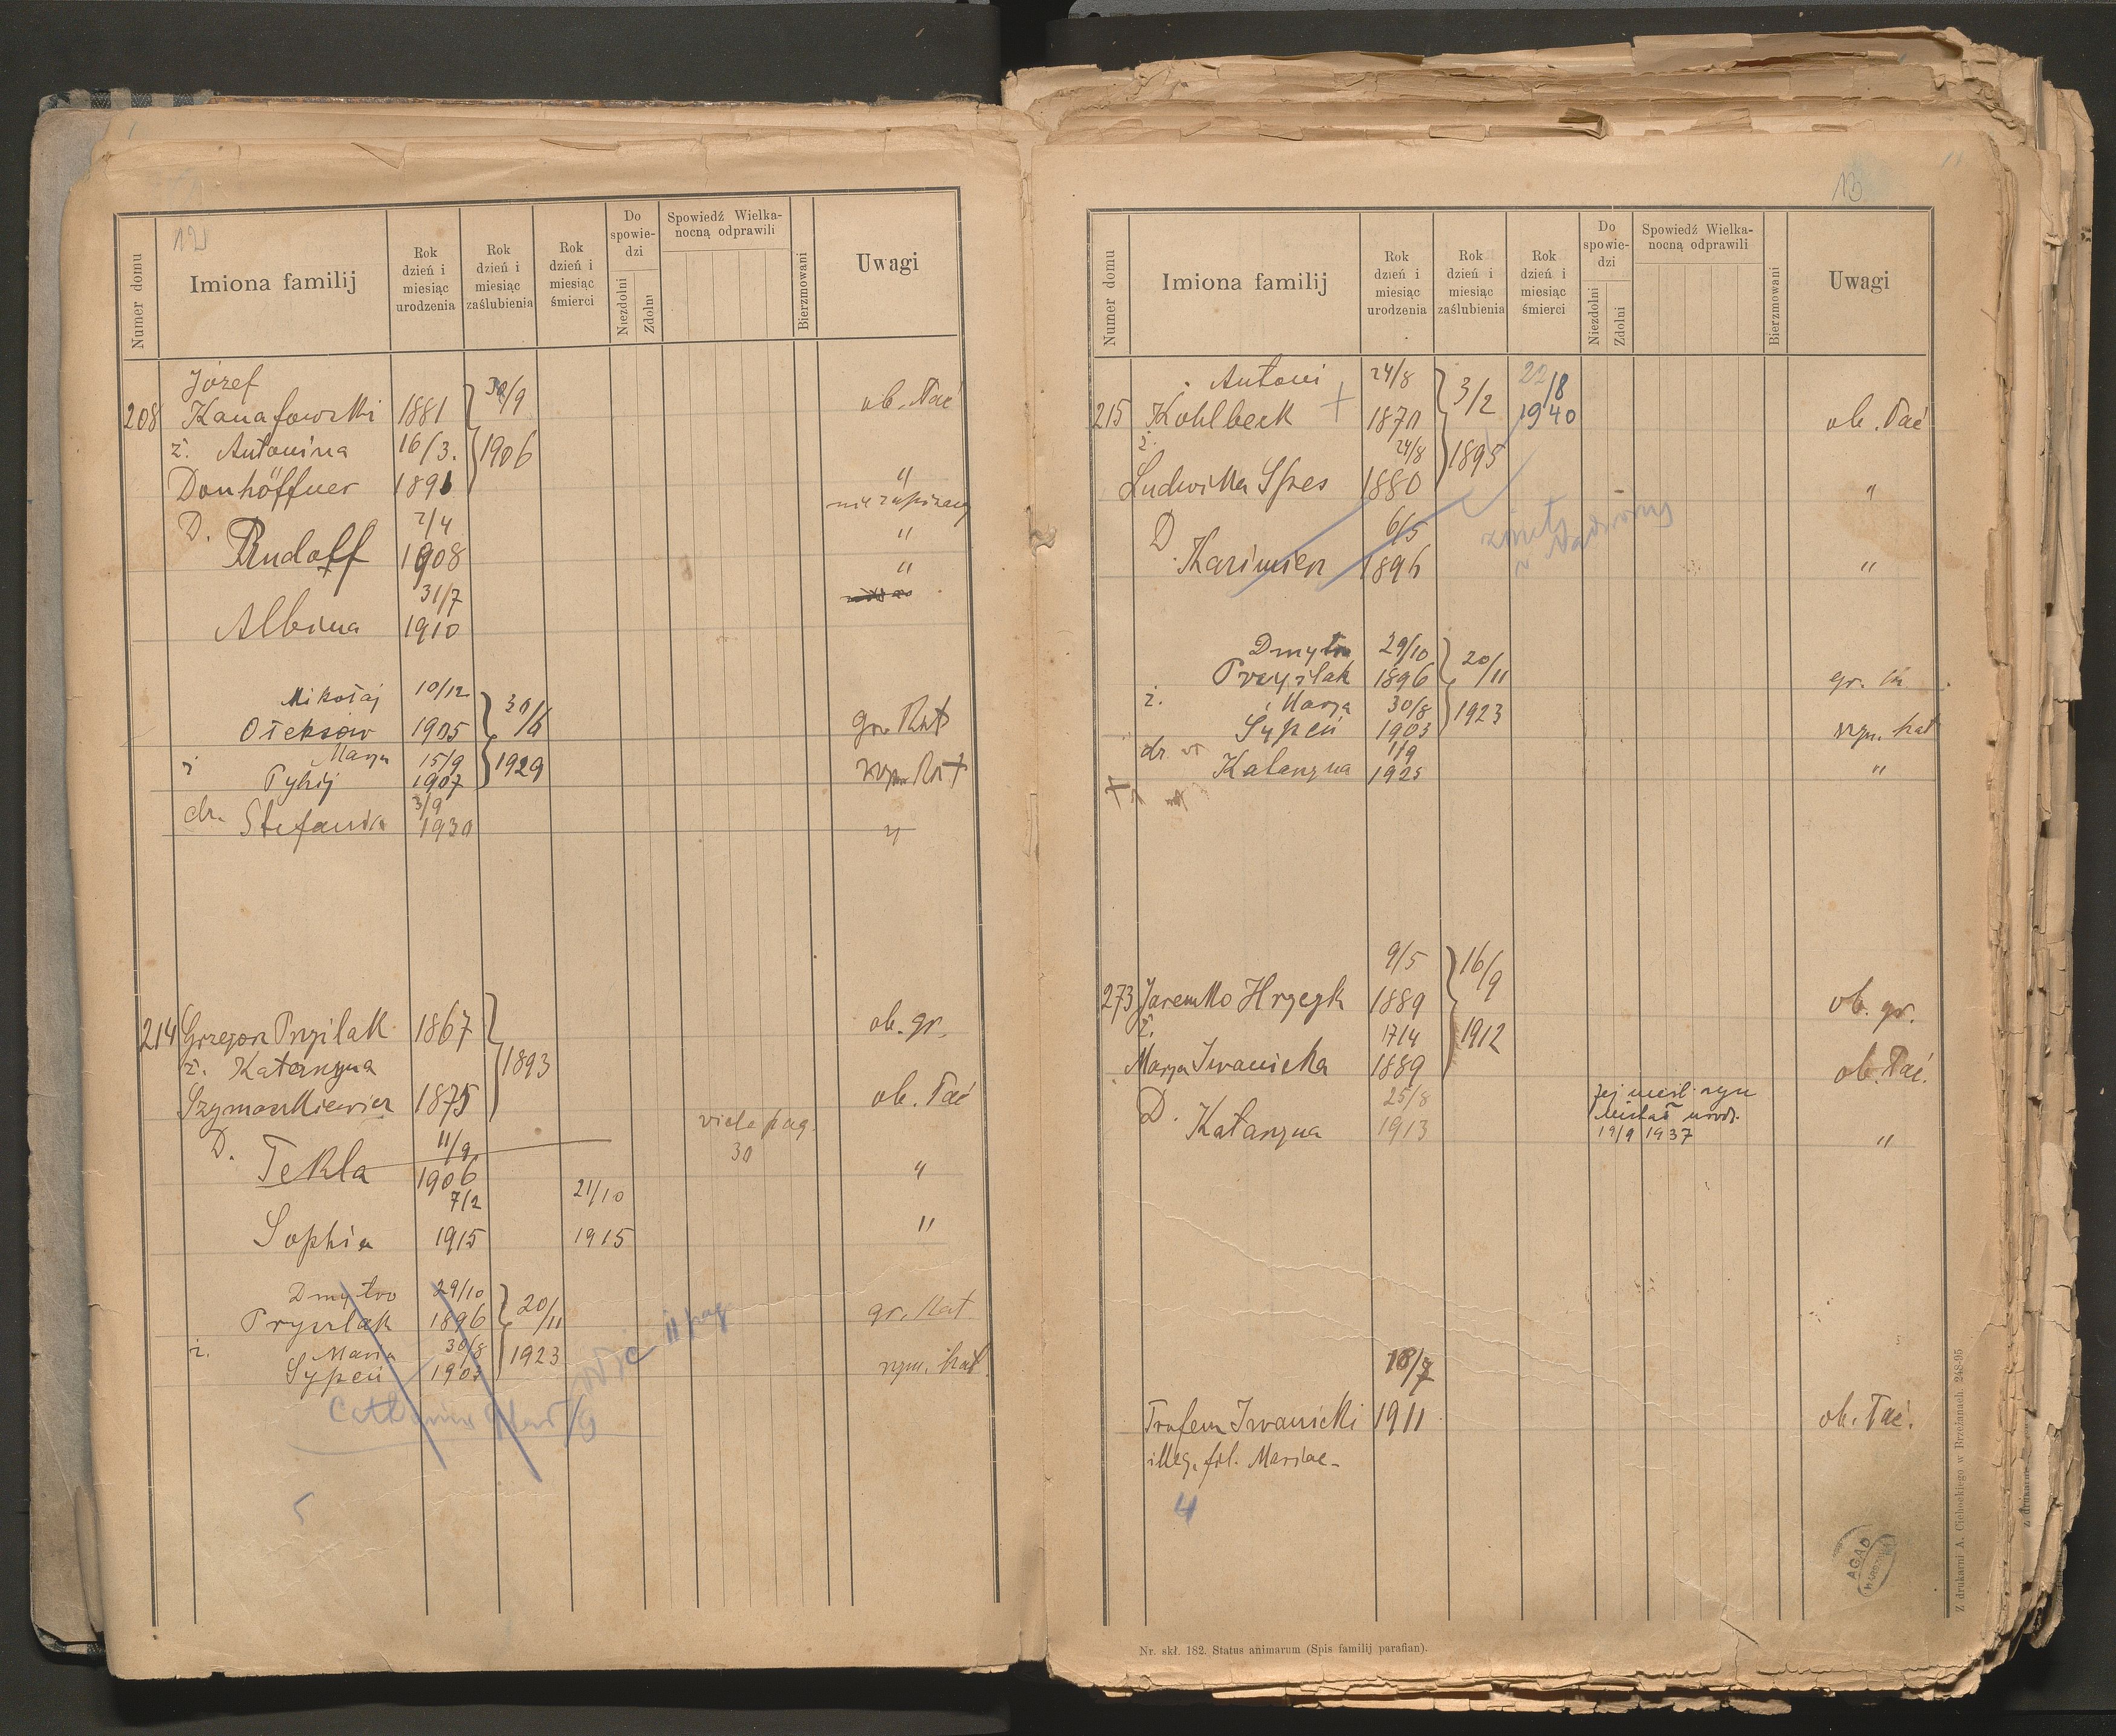 12
Numer domu
Imiona familij
Rok dzień i miesiąc urodzenia
Rok dzień i miesiąc zaślubienia
Rok dzień i miesiąc śmierci
Do spowiedzi
Niezdolni
Zdolni
Spowiedź Wielkanocną odprawili
Bierzmowani
Uwagi
Józef
208 Kanafowski 1881 30/9 ob. łać
ż. Antonina 16/3. 1906
Donhöffner 1891 "
nie zapisany
D. 2/4 "
Rudolf 1908
"
31/7
Albina 1910
Mikołaj 10/12
Ołeksów 1905 gr. Kat
ż Marya 15/9 1929 rzym. Kat
Pyhij 1907
dr. 3/9
Stefania 1930 "
214 Grzegorz Przyilak 1867 ob. gr.
ż. Katarzyna 1893
Szymonkiewicz 1875 ob. łać
vide pag.
D. 11/9 30
Tekla 1906 "
7/2 21/10
Sophia 1915 1915 "
Dmytro 29/10 20/11
Pryslak 1896 gr. Kat
ż. Maria 30/8 1923
Sypeń 1903 rzym. kat.
11 pag
5
13
Numer domu
Imiona familij
Rok dzień i miesiąc urodzenia
Rok dzień i miesiąc zaślubienia
Rok dzień i miesiąc śmierci
Do spowiedzi
Niezdolni
Zdolni
Spowiedź Wielkanocną odprawili
Bierzmowani
Uwagi
Antoni 24/8 3/2 22/8
215 Kohlbeck + 1870 1940 ob. łać
ż. 24/8 1895
Ludwika Spes 1880 "
D. 6/5
Kazimierz 1896 "
Dmytro 29/10 20/11
Prcyslak 1896 gr. k
ż. Marya 30/8 1923
Sypeń 1903 rzym. kat
dr. 1/9
Katarzyna 1925 "
9/5 16/9
273 Jaremko Hrycyk 1889 ob. gr.
ż. 17/4 1912
Marya Iwanicka 1889 ob. łać.
D. 25/8 jej nieśl. syn
Katarzyna 1913 urodz.
19/9 1937 "
18/7
Trofem Iwanicki 1911 ob. łać.
illeg. fil. Mariae
4
AGAD
WARSZAWA
Nr. skł. 182. Status animarum (Spis familij parafian).
Z drukarni A. Ciehockiego w Brzeżanach. 248-95